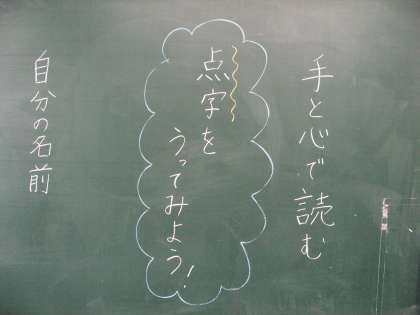 手と心で読む
点字を
うってみよう!
自分の名前